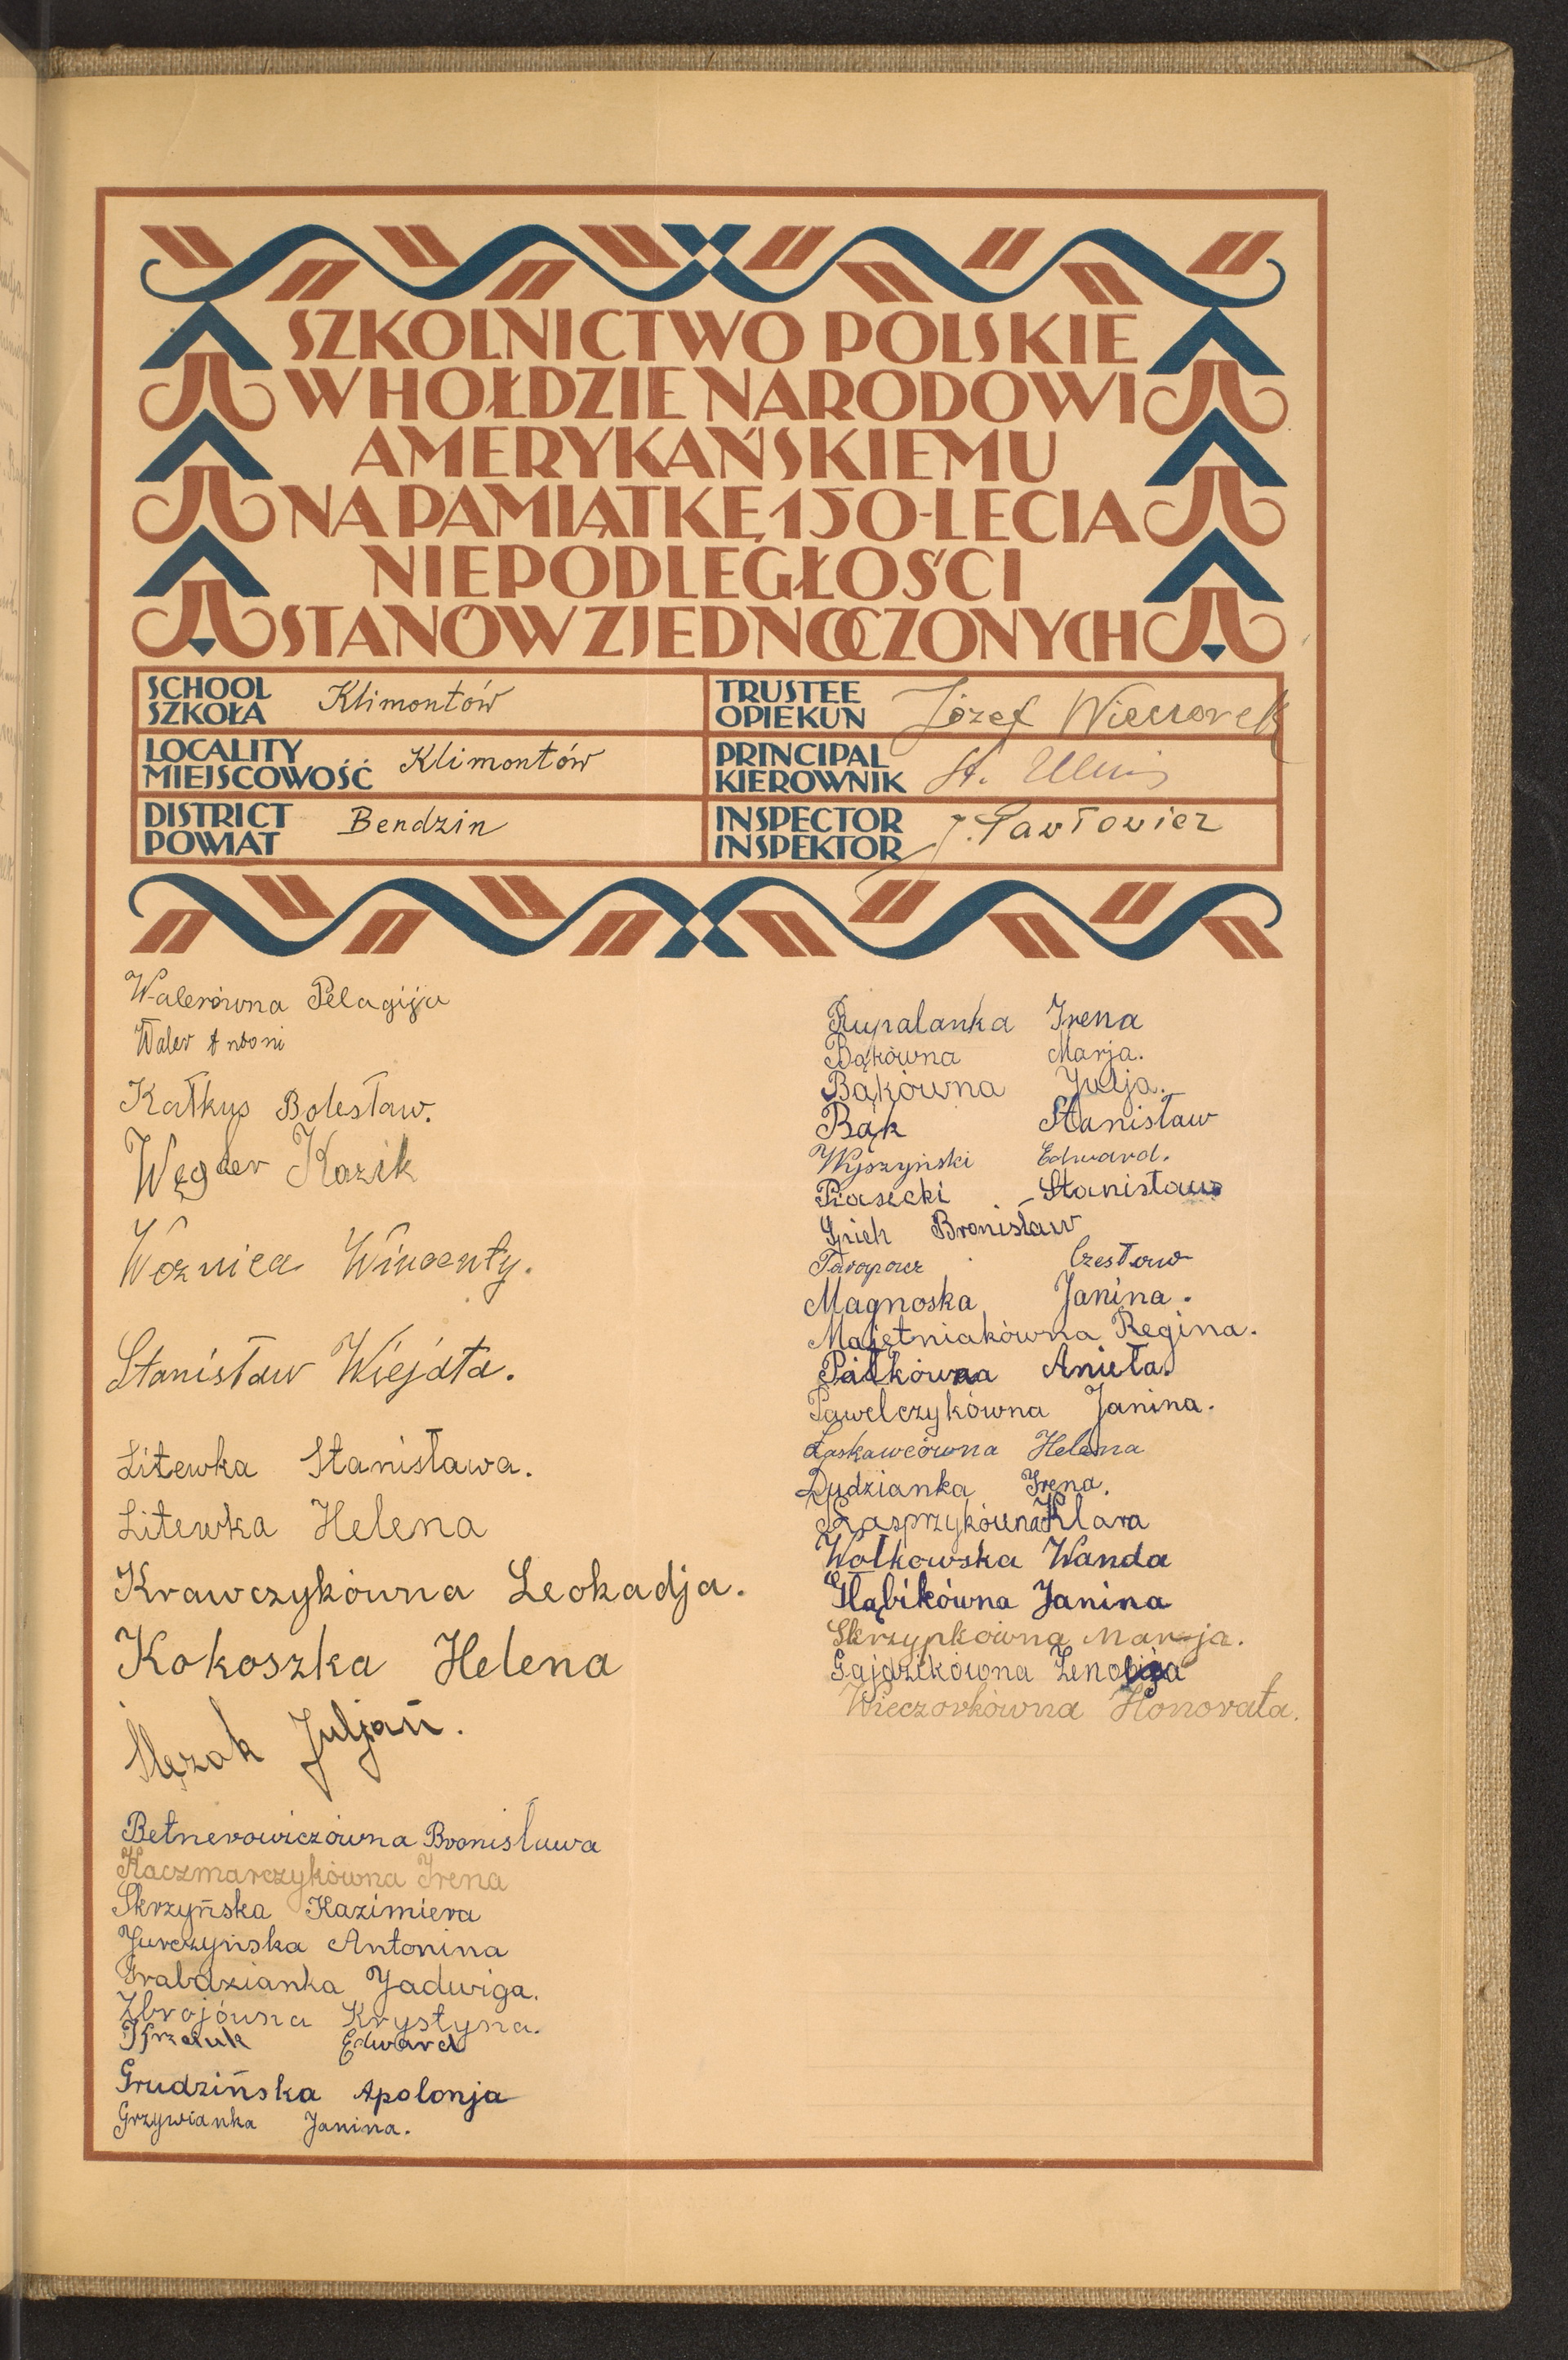 SZKOLNICTWO POLSKIE
W HOŁDZIE NARODOWI
AMERYKAŃSKIEMU
NA PAMIĄTKĘ 150-LECIA
NIEPODLEGŁOŚCI
STANÓW ZJEDNOCZONYCH
SCHOOL
SZKOŁA
Klimontów
TRUSTEE
OPIEKUN
Józef Wieczorek
LOCALITY
MIEJSCOWOŚĆ
Klimontów
PRINCIPAL
KIEROWNIK
St.
DISTRICT
POWIAT
Bendzin
INSPECTOR
INSPEKTOR
J. Pawłowicz
Walerówna Pelagija
Waler Antoni
Kałkus Bolesław.
Węgder Kazik
Woźnica Wincenty.
Stanisław Wiejata.
Litewka Stanisława.
Litewka Helena
Krawczykówna Leokadja.
Kokoszka Helena
Ślęzak Juljan.
Betnerowiczówna Bronisława
Kaczmarczykówna Irena
Skrzyńska Kazimiera
Jurczyńska Antonina
Grabdzianka Jadwiga.
Zbrojówna Krystyna.
Edward
Grudzińska Apolonja
Grzywianka Janina.
Rupalanka Irena
Bąkówna Marja.
Bąkówna Julja.
Bąk Stanisław
Wyszyński Edward.
Piasecki Stanisław
Bronisław
Czesław
Magnoska Janina.
Majętniakówna Regina.
Pałkówna Anieła.
Pawelczykówna Janina.
Łaskawcówna Helena
Dudzianka Irena.
Kasprzykówna Klara
Wołkowska Wanda
Głąbikówna Janina
Skrzypkówna Marja.
Gajdzikówna Zenobja
Wieczorkówna Honorata.